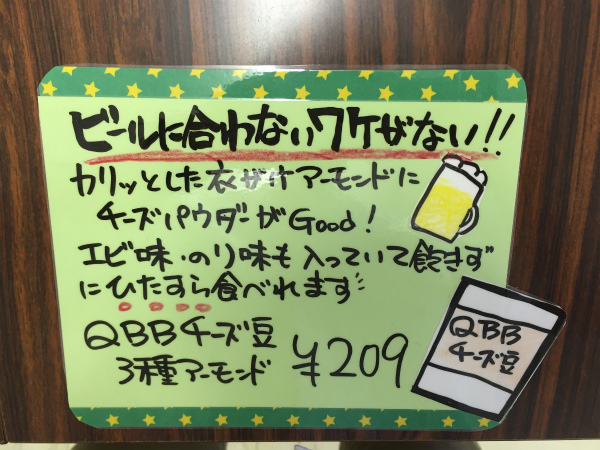 ビールに合わないワケがない!!
カリッとした衣がけアーモンドに
チーズパウダーがGood!
エビ味・のり味も入っていて飽きず
にひたすら食べれます
QBBチーズ豆
3種アーモンド ¥209
QBB
チーズ豆